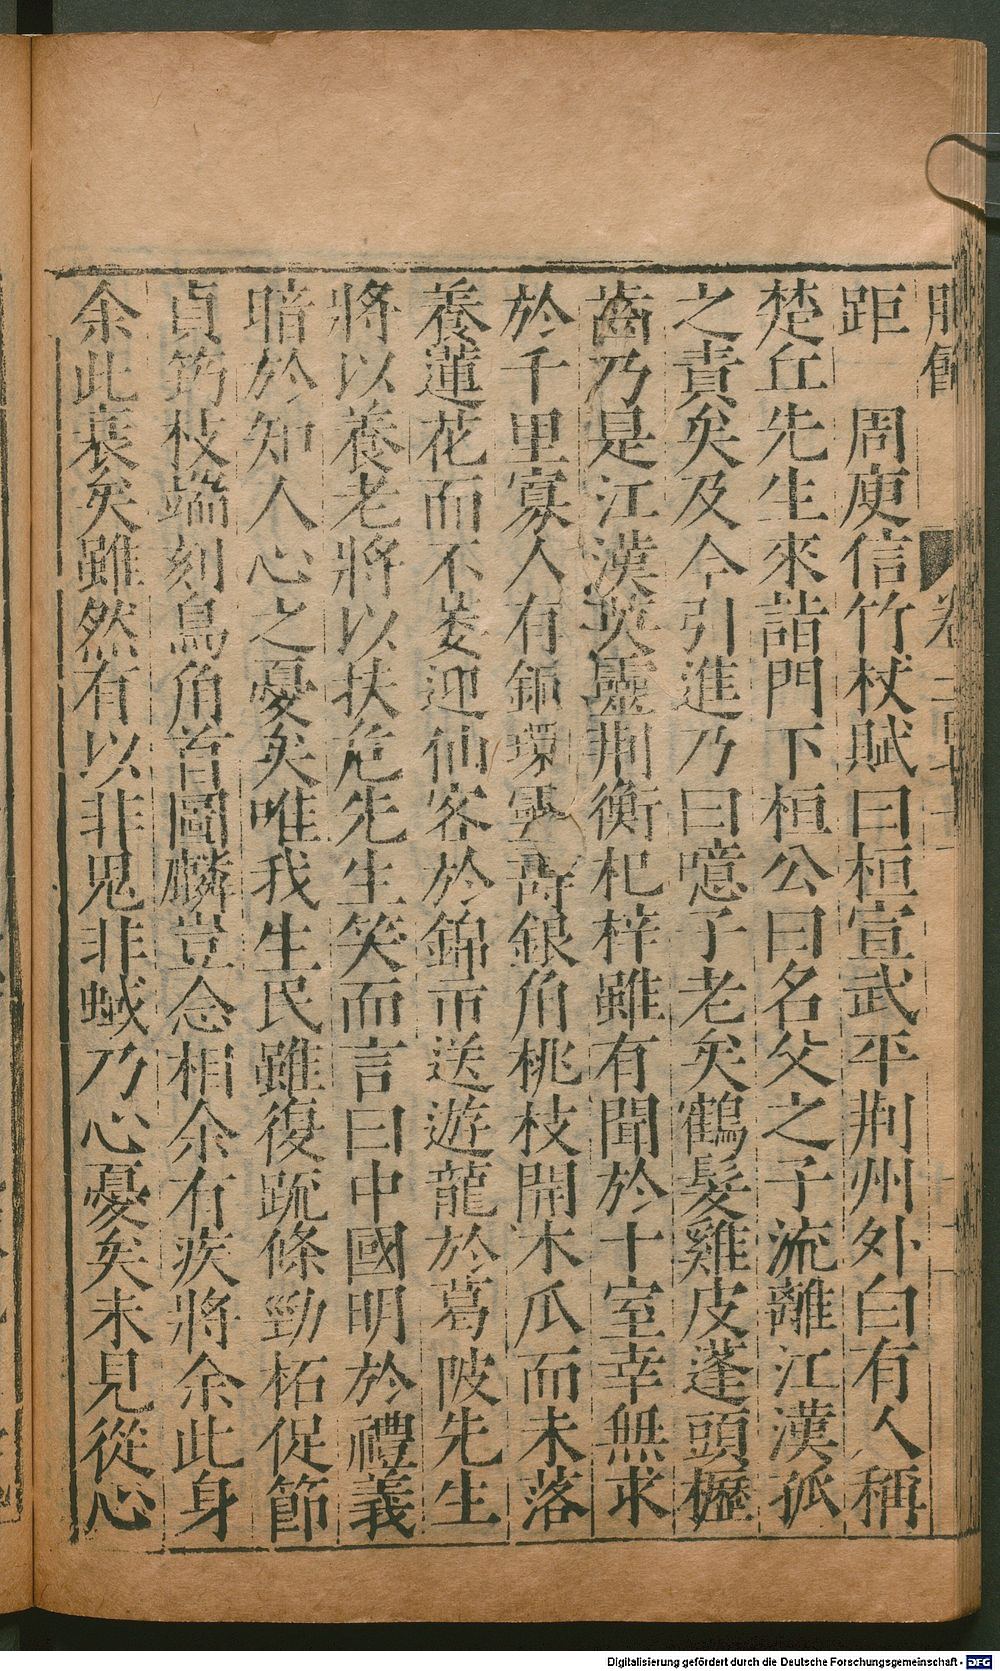 距　周庾信竹杖賦曰桓宣武平荆州外白有人稱
楚丘先生來詣門下桓公曰名父之子流離江漢孤
之責矣及今引進乃曰噫子老矣鶴髮雞皮蓬頭櫪
齒乃是江漢英靈荆衡杞梓雖有聞於十室幸無求
於千里寡人有銅環靈壽銀角桃枝開木瓜而未落
養蓮花而不萎迎仙客於錦市送遊龍於葛陂先生
將以養老將以扶危先生笑而言曰中國明於禮義
暗於知人心之憂矣唯我生民雖復疏條勁柘促節
貞筠杖端刻鳥角首圖麟豈念相余有疾將余此身
余此衰矣雖然有以非鬼非蜮乃心憂矣未見從心
Digitalisierung gefördert durch die Deutsche Forschungsgemeinschaft - DFG